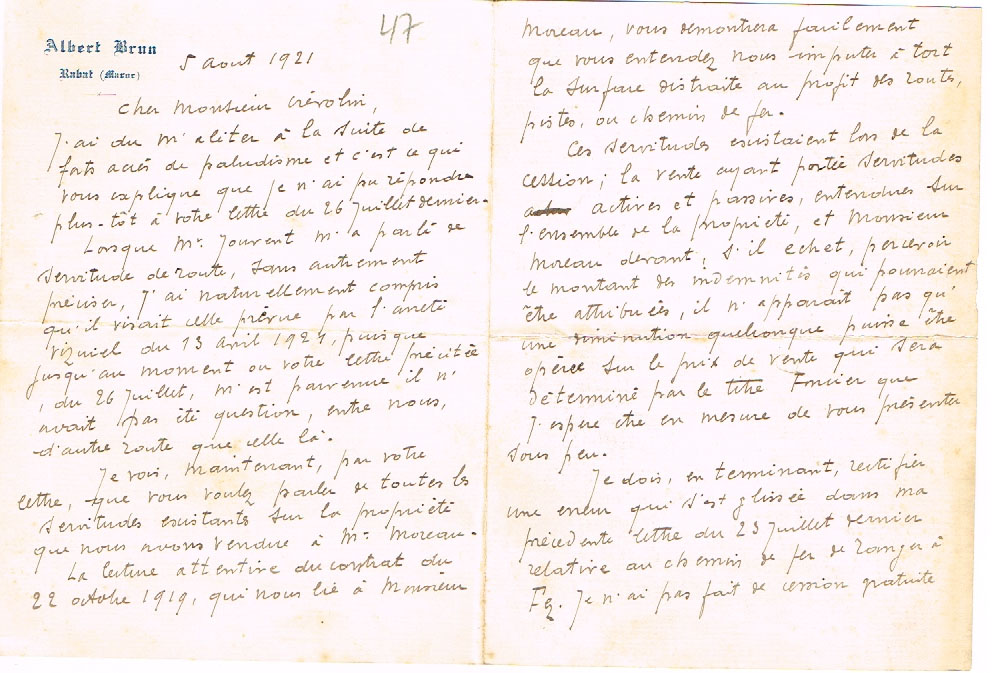 47
Albert Brun
Rabat (Maroc)
5 aout 1921
Cher Monsieur Crévolin,
J'ai du m'aliter à la suite de
forts accès de paludisme et c'est ce qui
vous explique que je n'ai pu répondre
plus-tôt à votre lettre du 26 Juillet dernier.
Lorsque Mr. Jouvent m'a parlé de
servitude de route, sans autrement
préciser, j'ai naturellement compris
qu'il visait celle prévue par l'arrêté
viziriel du 13 avril 1921, puisque
jusqu'au moment où votre lettre précitée
, du 26 Juillet, m'est parvenue il n'
avait pas été question, entre nous,
d'autre route que celle là.
Je vois, maintenant, par votre
lettre, que vous voulez parler de toutes les
servitudes existantes sur la propriété
que nous avons vendue à Mr. Moreau.
La lecture attentive du contrat du
22 octobre 1919, qui nous lie à Monsieur
Moreau, vous démontrera facilement
que vous entendez nous imputer à tort
la surface distraite au profit des routes,
pistes, ou chemins de fer.
Ces servitudes existaient lors de la
cession; la vente ayant portée servitudes
actives et passives, entendues sur
l'ensemble de la propriété, et Monsieur
Moreau devant, s'il echet, percevoir
le montant des indemnités qui pourraient
être attribuées, il n'apparait pas qu'
une diminution quelconque puisse être
opérée sur le prix de vente qui sera
déterminé par le titre Foncier que
j'espere etre en mesure de vous présenter
sous peu.
Je dois, en terminant, rectifier
une erreur qui s'est glissée dans ma
précédente lettre du 23 Juillet dernier
relative au chemin de fer de Tanger à
Fez. Je n'ai pas fait de cession gratuite